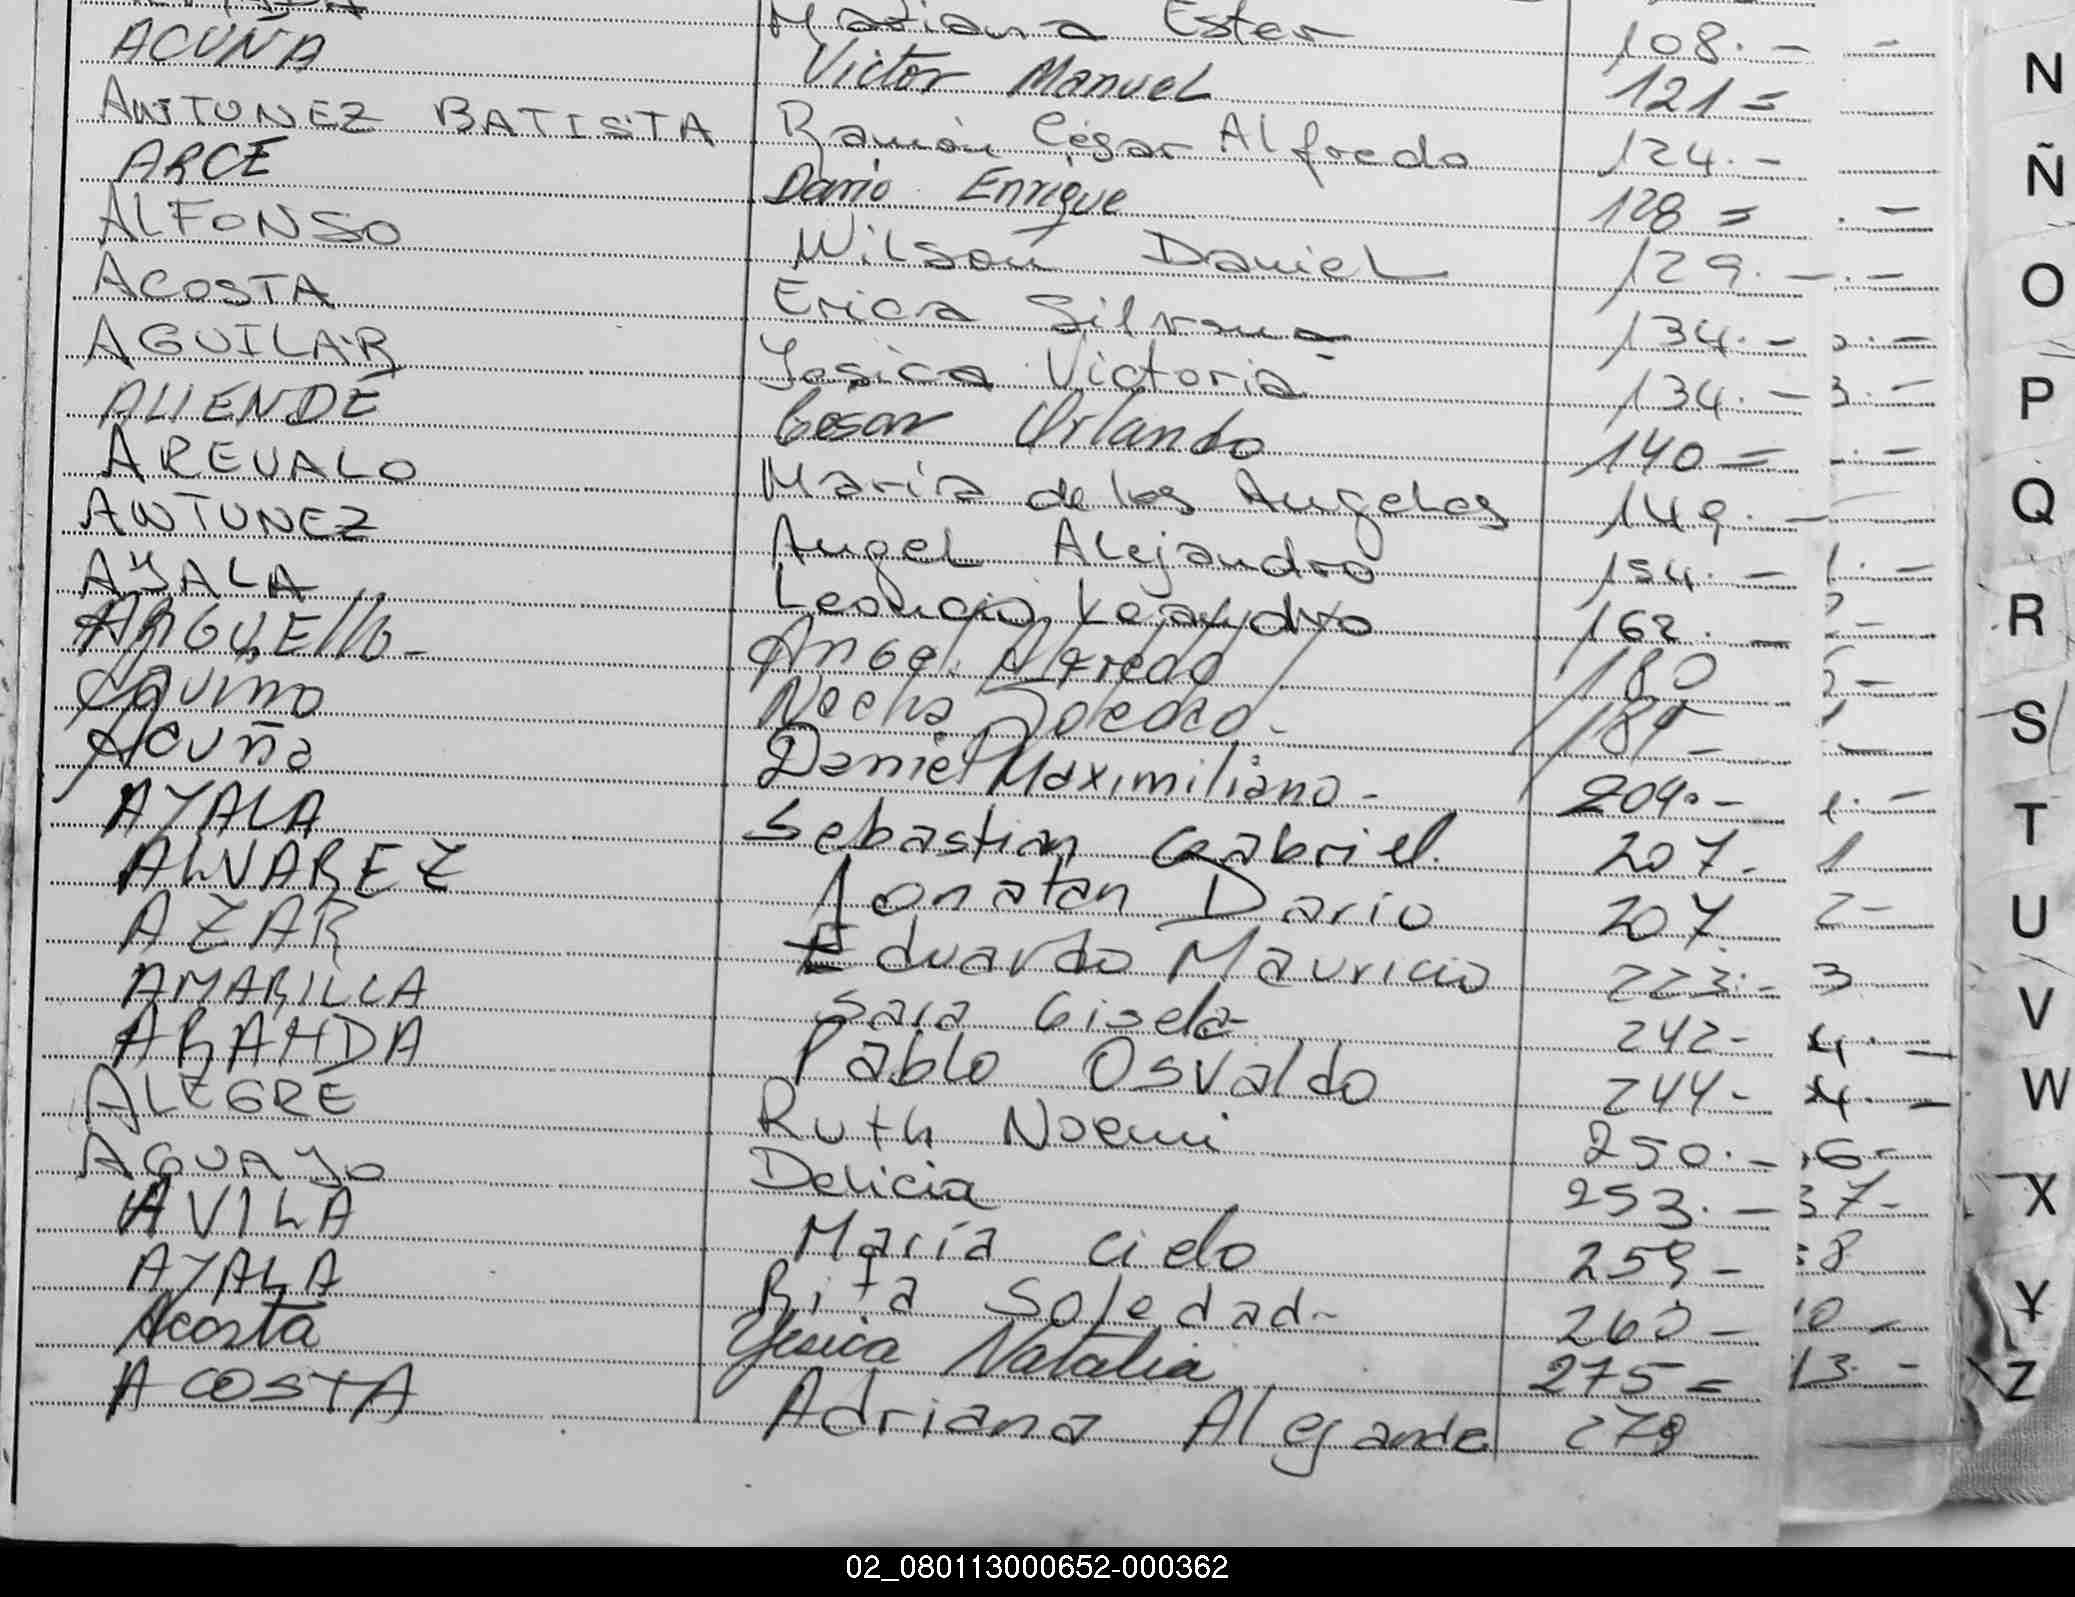 Mariana Ester 108.-
ACUÑA Victor Manuel 121=
ANTUNEZ BATISTA Ramón César Alfredo 124.-
ARCE Darío Enrique 128=
ALFONSO Wilson Daniel 129.-
ACOSTA Erica Silvana 134.-
AGUILAR Yesica Victoria 134.-
ALLENDE César Orlando 140=
AREVALO Maria de los Angeles 149.-
ANTUNEZ Angel Alejandro 154.-
AYALA Leoncio Leandro 162.-
ARGUELLO- Angel Alfredo 180
Aquino 189-
Acuña Daniel Maximiliano- 204.-
AYALA Sebastian Gabriel. 207-
ALVAREZ Jonatan Dario 207.
AZAR Eduardo Mauricio 223.-
AMARILLA Sara Gisela 242-
ARANDA Pablo Osvaldo 244-
ALEGRE Ruth Noemi 250.-
AGUAYO Delicia 253.-
AVILA María Cielo 259-
AYALA Rita Soledad- 260-
Acosta Yesica Natalia 275=
ACOSTA Adriana Alejandra 278
N
Ñ
O
P
Q
R
S
T
U
V
W
X
Y
Z
02_080113000652-000362